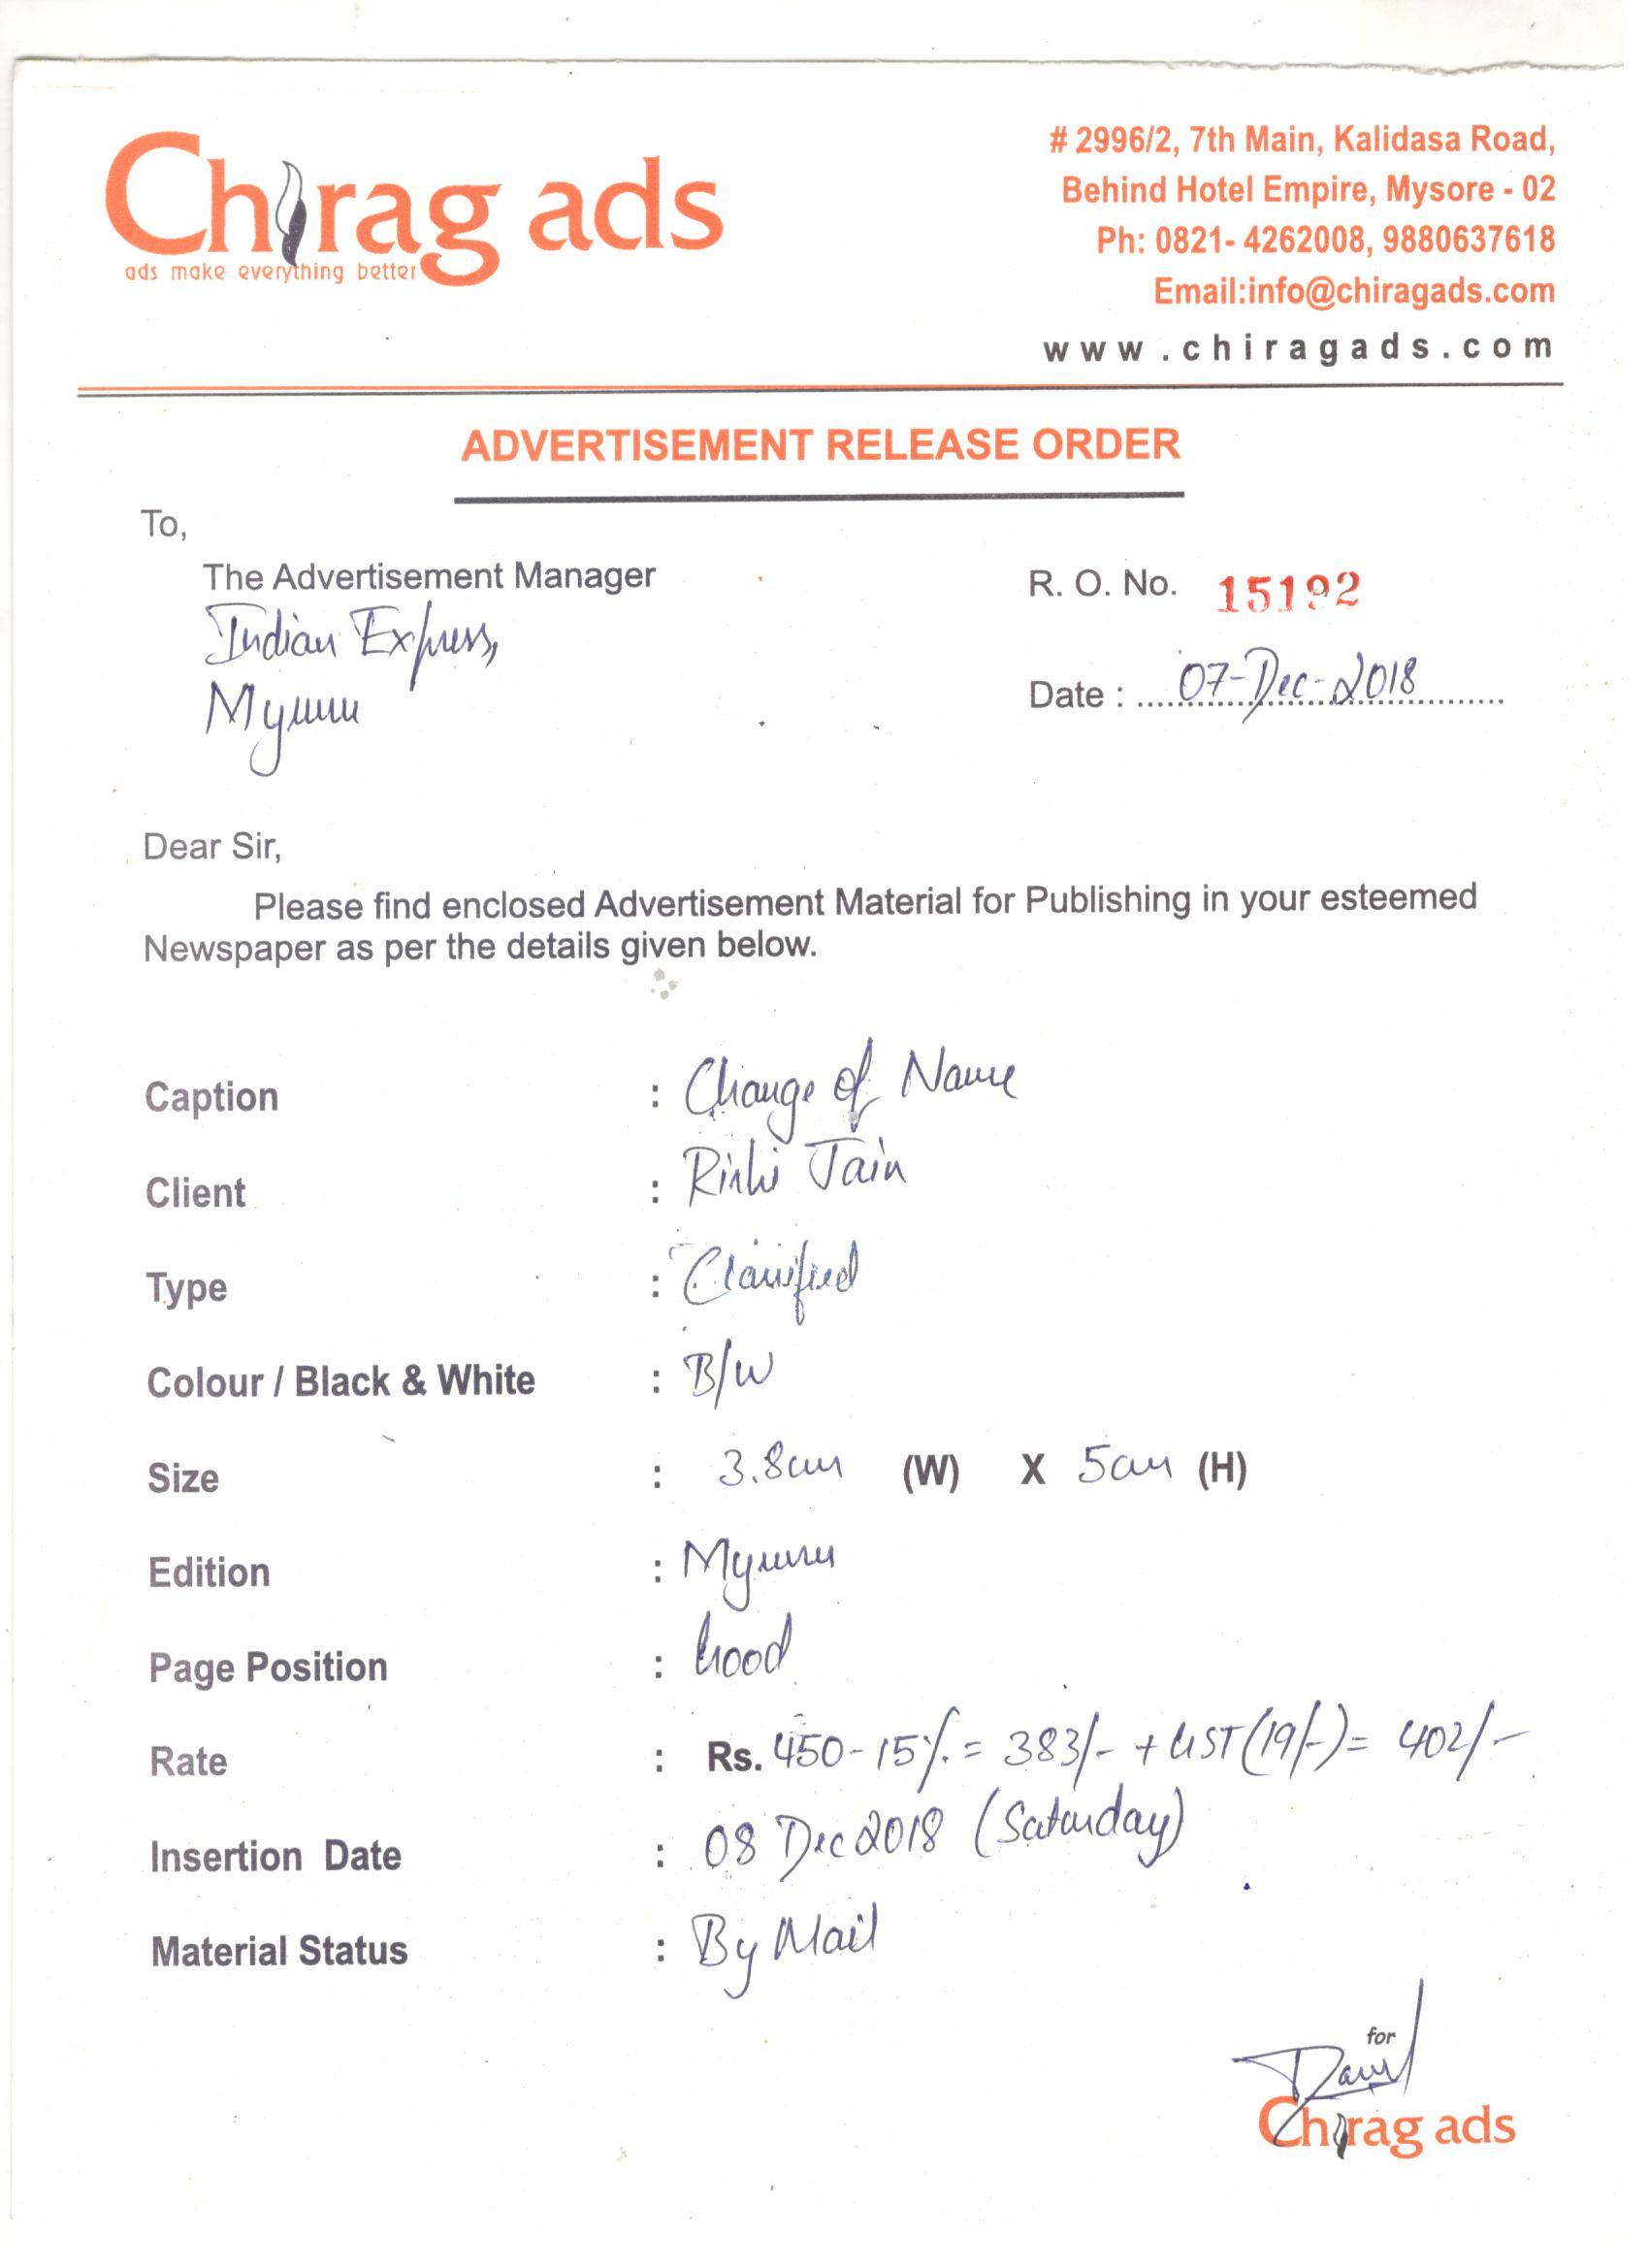 Chirag ads
ads make everything better
# 2996/2, 7th Main, Kalidasa Road,
Behind Hotel Empire, Mysore - 02
Ph: 0821- 4262008, 9880637618
Email:info@chiragads.com
www.chiragads.com
ADVERTISEMENT RELEASE ORDER
To,
The Advertisement Manager
Indian Express,
Mysuru
R. O. No. 15192
Date : 07-Dec-2018
Dear Sir,
Please find enclosed Advertisement Material for Publishing in your esteemed
Newspaper as per the details given below.
Caption : Change of Name
Client : Rishi Jain
Type : Classified
Colour / Black & White : B/W
Size : 3.8cm (W) X 5cm (H)
Edition : Mysuru
Page Position : Good
Rate : Rs. 450-15%.= 383/- + GST(19/-)= 402/-
Insertion Date : 08 Dec 2018 (Saturday)
Material Status : By Mail
for
Chirag ads